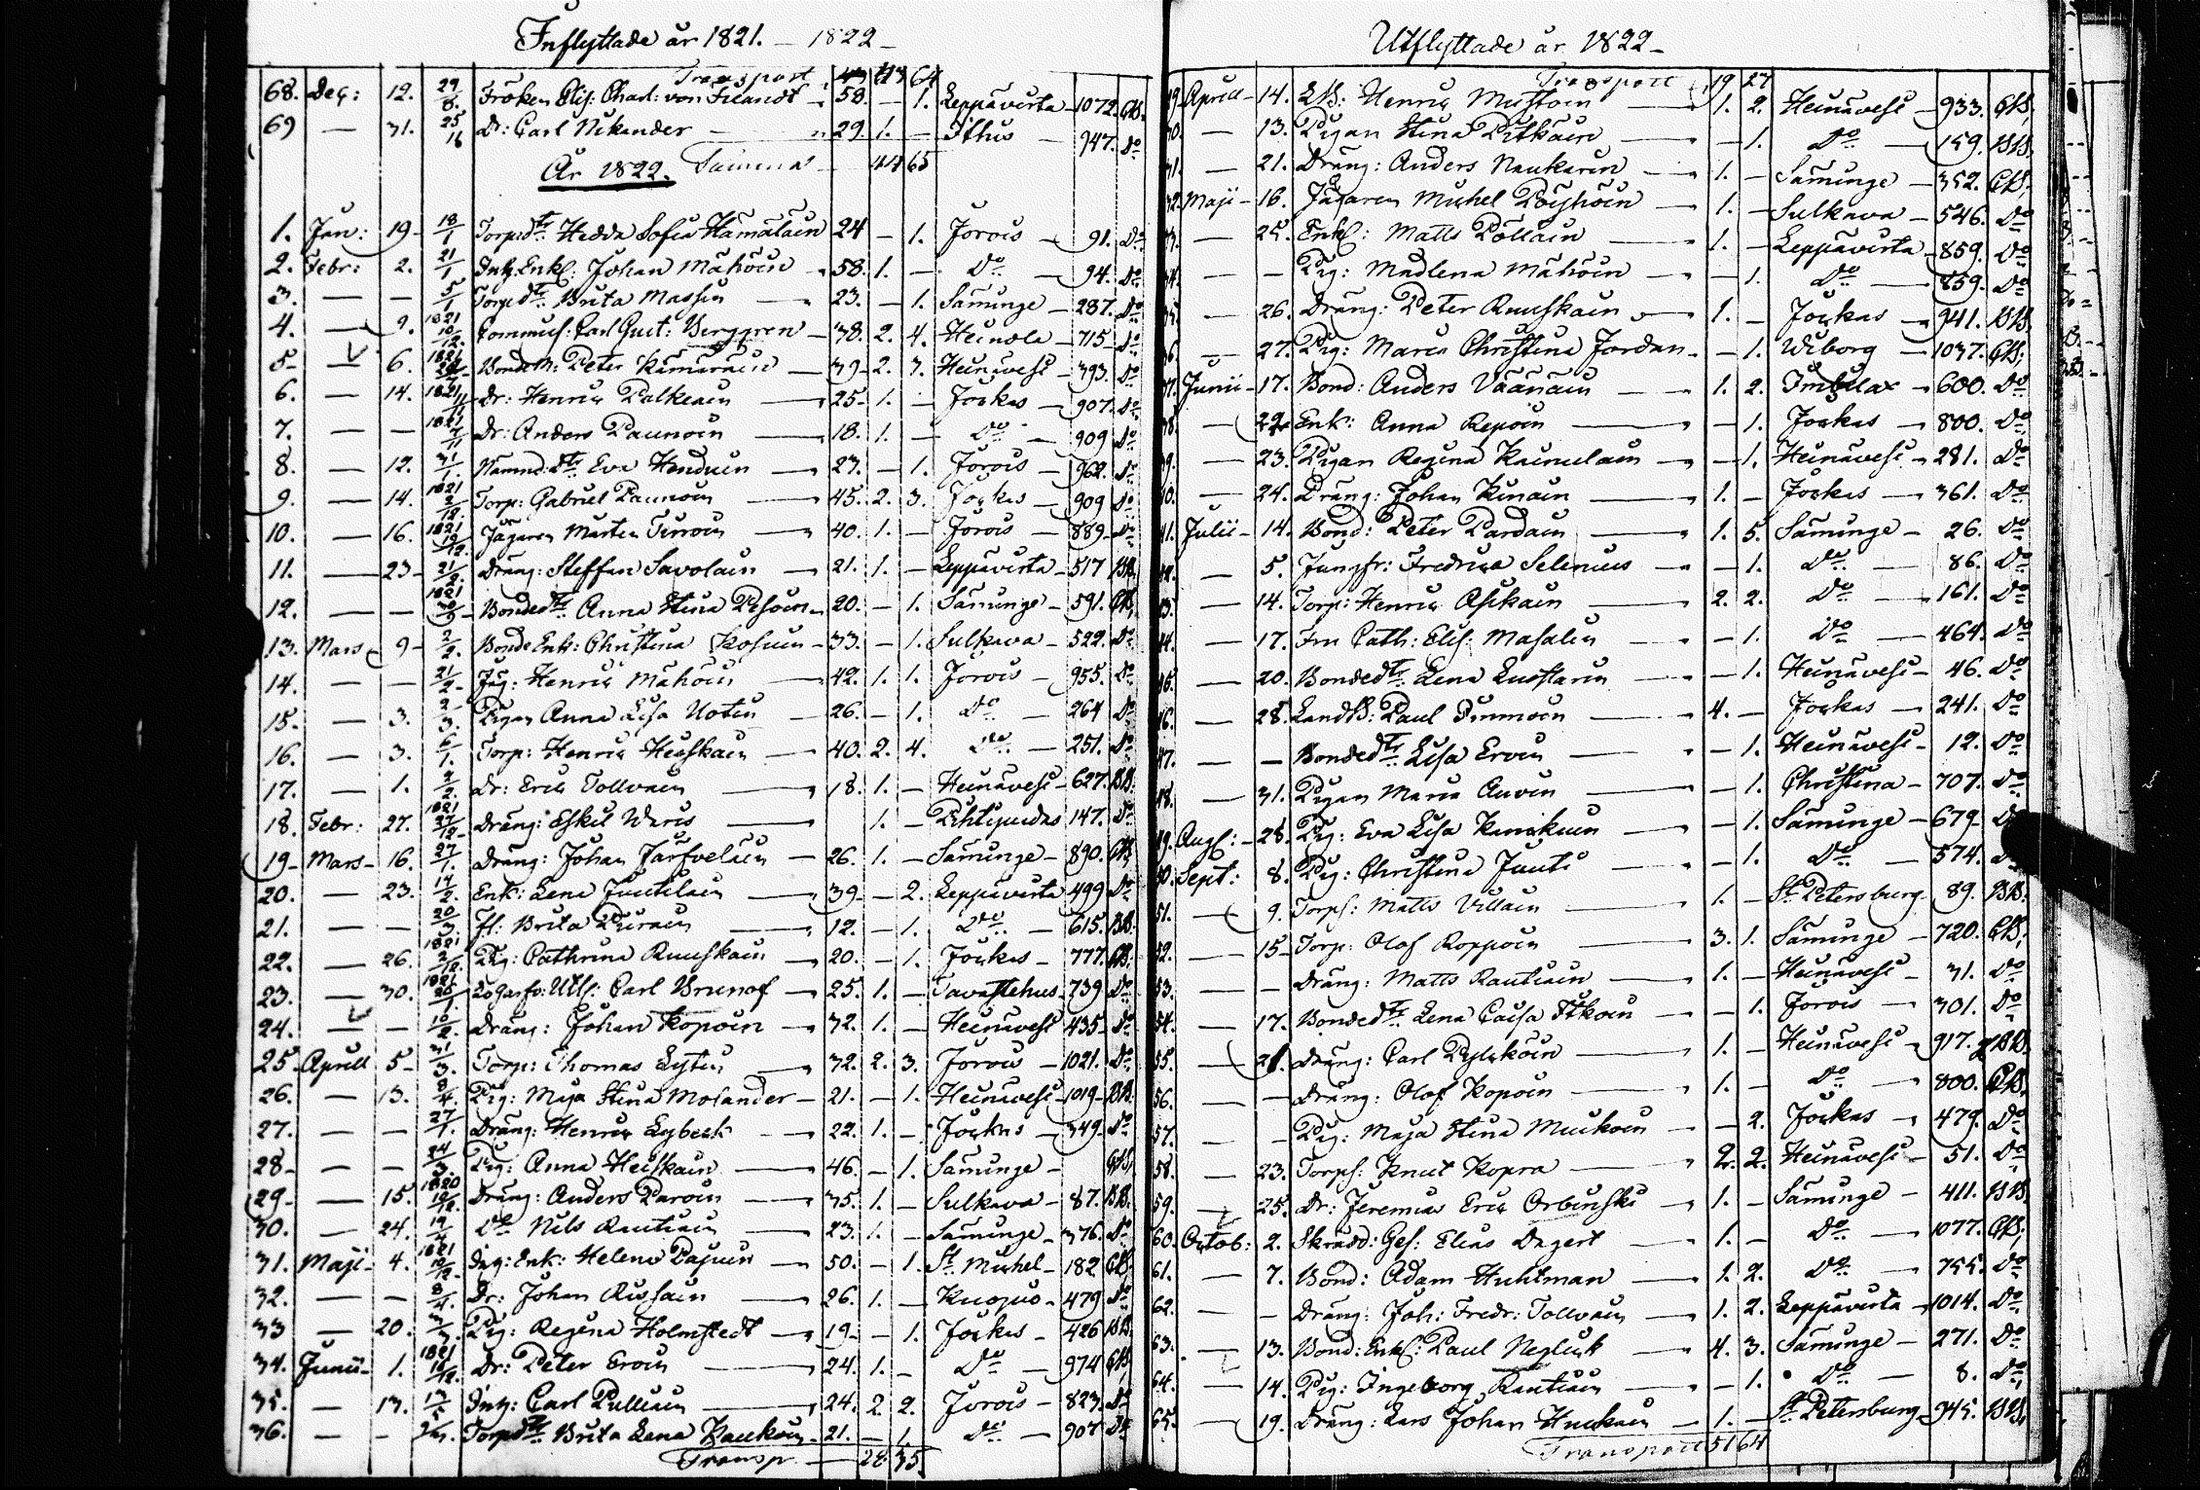 Inflyttade år 1821. - 1822 -
Transport 43 64
68. Dec: 12. 29/8. Fröken Elis: Charl: von Fieandt 58. - 1. Leppävirta 1072. GB.
69 - 31. 25/16 Dr: Carl Nikander 29. 1. - Ithis 947. Do
År 1822. Summa 44 65
1. Jan: 19 18/1 Torpedtr Hedda Sofia Hämäläin 24 - 1. Jorois 91. Do
2. Febr: 2. 21/1 Inh: Enkl: Johan Mähöin 58. 1. - Do 94. Do
3. - - 5/1 Torpedtr Brita Massin 23. - 1. Säminge 287. Do
4. - 9. 1821 10/12. Commiss: Carl Gust: Berggren 38. 2. 4. Heinola 715 Do
5 - 6. 1821 Bondem: Peter Kämäräin 39 2. 3. Heinävesi 393. Do
6. - 14. 1821 11/11 Dr: Henric Palkeain 25 1. - Jockas 907. Do
7. - - 1821 7/11 Dr: Anders Paunoin 18. 1. - Do 909 Do
8. - 12. 31/1. Nämnd:dtr Eva Hendunin 23. - 1. Jorois 962. Do
9. - 14. 1821 2/12 Torp: Gabriel Paunoin 45. 2. 3. Jockas 909 Do
10. - 16. 1821 19/12. Jägaren Mårten Turoin 40. 1. - Jorois 889. Do
11. - 23 21/2. Dräng: Steffan Savolain 21. 1. - Leppävirta 517 BB.
12. - - 1821 30/9 Bondedtr Anna Stina Pesoin 20. - 1. Säminge 591. GB.
13. Mars 9 2/2. Bonde Enk: Christina Kosuin 33. - 1. Sulkava 522. Do
14. - - 21/2 Jäg: Henric Mähöin 42. 1. 1. Jorois 955. Do
15. - 3. 2/3. Pigan Anna Lisa Uotin 26. - 1. Do 264 Do
16. - 3. 6/1. Torp: Henric Heiskain 40. 2. 4. Do 251. Do
17. - 1. 2/2. Dr: Eric Tollvain 18. 1. - Heinävesi 627. BB.
18. Febr: 27. 1821 27/12 Dräng: Eskil Waris 1. - Pihtipudas 147. Do
19 Mars 16. 27/1. Dräng: Johan Järfveläin 26. 1. - Säminge 890. GB.
20. - 23. 14/2. Enk: Lena Juutilain 39 - 2. Leppävirta 499 Do
21. - - 20/3. Fl: Brita Purain 12. - 1. Do 615. BB.
22. - 26. 1821 2/12. Pig: Cathrina Ruuskain 20. - 1. Jockas 777. GB.
23. - 30. 1821 Logarfv: Utl: Carl Brunof 25. 1. - Tavastehus 739 Do
24. - - 10/2. Dräng: Johan Kopoin 32. 1. - Heinävesi 435 Do
25 Aprill 5 31/3. Torp: Thomas Lytin 32. 2. 3. Jorois 1021. Do
26. - 13. 8/4. Pig: Maja Stina Molander 21. - 1. Heinävesi 1019 BB.
27. - - 27/1. Dräng: Henric Lybeck 22. 1. - Jockas 349 Do
28 - - 24/3. Pig: Anna Heiskain 46. - 1. Säminge GB.
29 - 15. 1820 19/12. Dräng: Anders Paroin 35. 1. - Sulkava 87. BB.
30. - 24. 19/4 Do Nils Rautiain 23. 1. - Säminge 376. Do
31. Maji 4. 1821 10/12. Inh: Enk: Helena Pajuin 50. - 1. St Michel 182 GB.
32. - - 8/4. Dr: Johan Rissain 26. 1. - Kuopio 479 Do
33 - 20. 3/3. Pig: Regina Holmstedt 19 - 1. Jockas 426 BB.
34. Junii 1. 1821 16/12. Dr: Peter Eroin 24. 1. - Do 974 GB.
35. - 13. 13/5 Inh: Carl Pulliain 24. 2. 2. Jorois 823. Do
36. - - Torpedtr Brita Lena Kaukoin 21. - 1. Do 907 Do
Transp 28. 35.
Utflyttade år 1822 -
Transport 19 27
29 Aprill 14. LB: Henric Mustoin 1. 2. Heinävesi 933. GB.
30. - 13. Pigan Stina Pitkäin - 1. Do 159. BB.
31. - 21. Dräng: Anders Naukarin 1. - Säminge 352. GB.
32. Maji 16. Jägaren Michel Pöyhöin 1. - Sulkava 546. Do
33. - 25. Enkl: Matts Pöllain 1. - Leppävirta 859. Do
34. - - Pig: Madlena Mähöin - 1. Do 859. Do
35. - 26. Dräng: Peter Ruuskain 1. - Jockas 941. BB.
36. - 27. Pig: Maria Christina Jordan - 1. Wiborg 1037. GB.
37. Junii 17. Bond: Anders Väänäin 1. 2. Imbilax 600. Do
38. - 22 Enk: Anna Repoin - 1. Jockas 800. Do
39. - 23. Pigan Regina Kainulain - 1. Heinävesi 281. Do
40. - 24. Dräng: Johan Kinain 1. - Jockas 361. Do
41. Julii 14. Bond: Peter Pardain 1. 5. Säminge 26. Do
42. - 5. Jungfr: Fredrica Selenius - 1. Do 86. Do
43. - 14. Torp: Henric Asikain 2. 2. Do 161. Do
44. - 17. Fru Cath: Elis: Masalin - 1. Do 464. Do
45. - 20. Bondedtr Lena Luostarin - 1. Heinävesi 46. Do
46. - 28. LandB: Paul Pimmoin 4. - Jockas 241. Do
47. - - Bondedtr Lisa Ervin - 1. Heinävesi 12. Do
48. - 31. Pigan Maria Auvin - 1. Christina 707. Do
49. Aug: 28. Pig: Eva Lisa Kinnkuin - 1. Säminge 679 Do
50. Sept: 8. Pig: Christina Junti - 1. Do 574. Do
51. - 9. Torps: Matts Villain 1. - St Petersburg 89. BB.
52. - 15 Torp: Olof Roppoin 3. 1. Säminge 720. GB.
53. - - Dräng: Matts Rautiain 1. - Heinävesi 31. Do
54. - 17. Bondedtr Lena Caisa Itkoin - 1. Jorois 301. Do
55. - 21. Dräng: Carl Pylcköin 1. - Heinävesi 917. BB.
56. - - Dräng: Olof Kopoin 1. - Do 800. GB.
57. - - Pig: Maja Stina Muckoin - 2. Jockas 479. Do
58. - 23. Torps: Knut Kopra 2. 2. Heinävesi 51. Do
59. - 25. Dr: Jeremias Eric Orbinski 1. - Säminge 411. BB.
60. Octob: 2. Skrädd: Ges: Elias Dagert 1. - Do 1077. GB.
61. - 7. Bond: Adam Huhtman 1. 2. Do 755. Do
62. - - Dräng: Joh: Fredr: Tollvain 1. 2. Leppävirta 1014. Do
63. - 13. Bond: Enkl: Paul Neglick 4. 3. Säminge 271. Do
64. - 14. Pig: Ingeborg Rautiain - 1. Do 8. Do
65. - 19. Dräng: Lars Johan Huckain 1. - St Petersburg 945. BB.
Transport 51 64